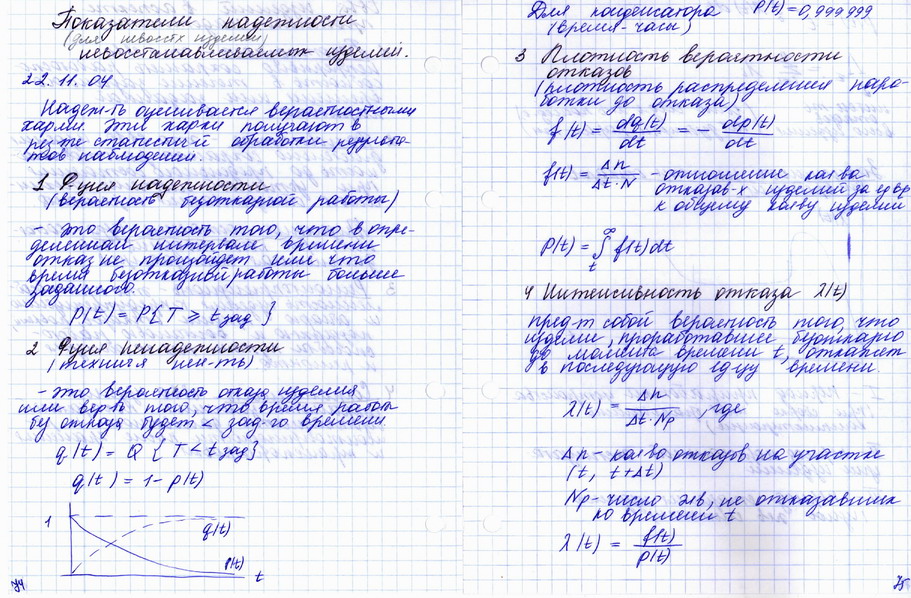 Показатели надежности
(для невосст изделий)
невосстанавливаемых изделий.
22.11.04
Надеж-ть оценивается вероятностными
харми. Эти харки получают в
рез-те статистич обработки результа-
тов наблюдений.
1 Фция надежности
(вероятность безотказной работы)
- это вероятность того, что в опре-
деленном интервале времени
отказ не произойдет или что
время безотказной работы больше
заданного.
P(t) = P{T ≥ t зад}
2 Фция ненадежности
- это вероятность отказа изделия
или вер-ть того, что время работ
бу отказа будет < зад-го времени
q(t) = Q {T < t зад}
q(t) = 1 - p(t)
1
q(t)
p(t)
t
74
Для конденсатора P(t) = 0,999999
(время-часы)
3 Плотность вероятности
отказов
(плотность распределения наро-
ботки до отказа)
f(t) = dq(t)/dt = - dp(t)/dt
f(t) = Δn/Δt·N - отношение кол-ва
отказав-х изделий за ед вр
к общему кол-ву изделий
P(t) = ∫t∞ f(t)dt
4 Интенсивность отказа λ(t)
пред-т собой вероятность того, что
изделии, проработавшее безотказно
до момента времени t, откажет
в последующую ед-цу времени.
λ(t) = Δn/Δt·Np, где
Δn - кол-во отказов на участке
(t, t+Δt)
Np - число эл-в, не отказавших
ко времени t
λ(t) = f(t)/p(t)
75